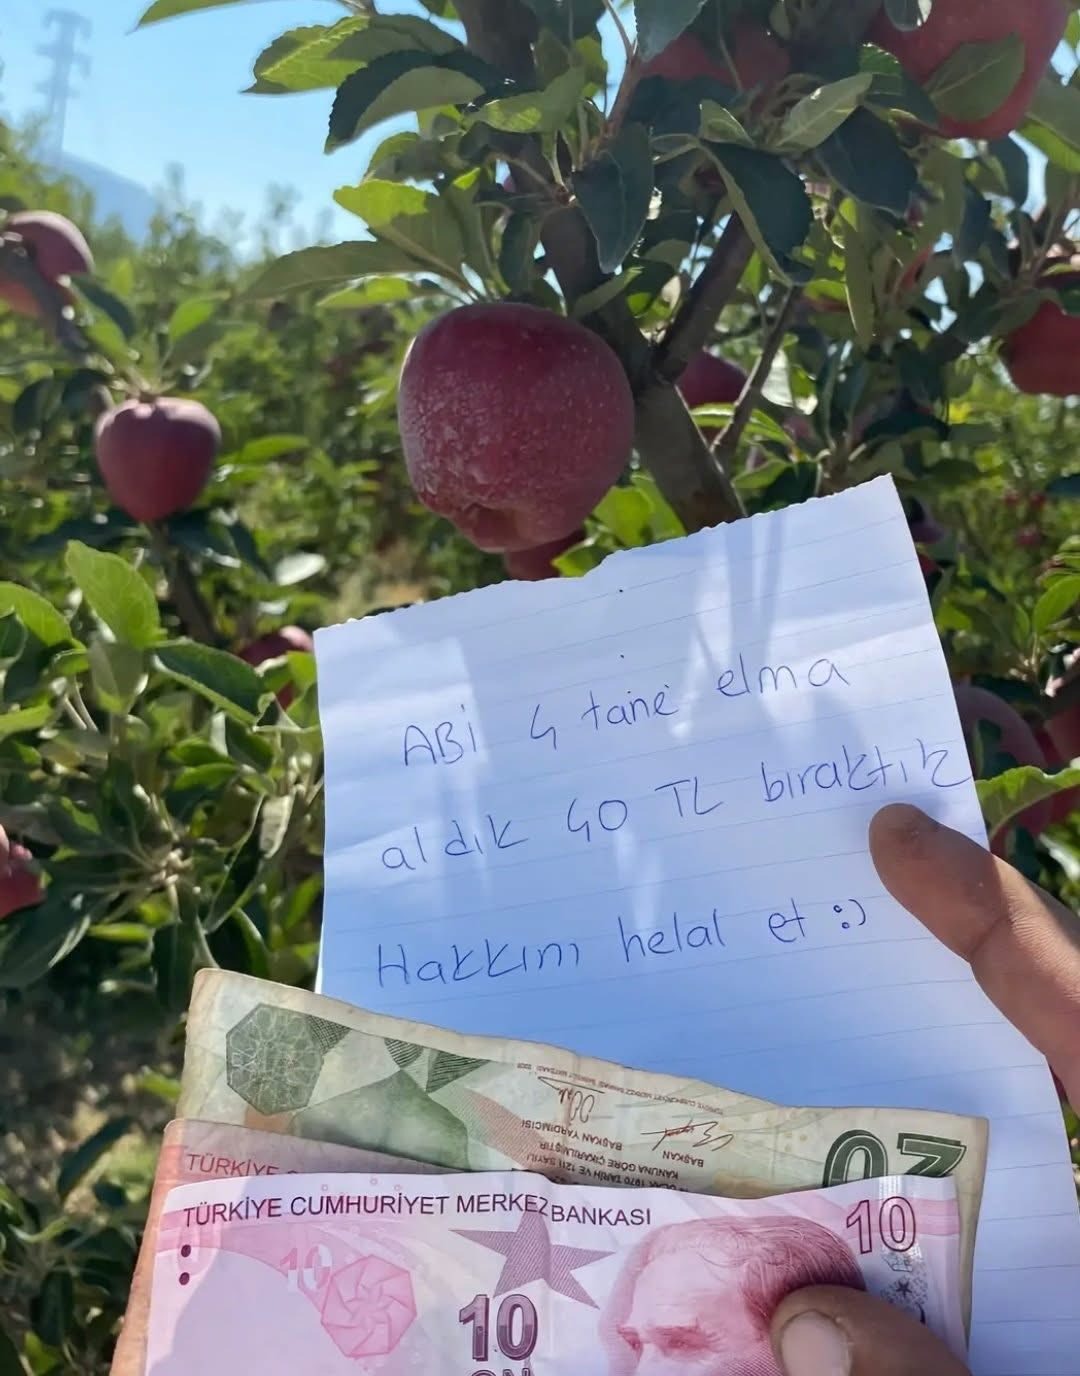 ABİ 4 tane elma
aldık 40 TL bıraktık
Hakkını helal et :)
BAŞKAN YARDIMCISI
BAŞKAN
KANUNA GÖRE ÇIKARILMIŞTIR
20
TÜRKİYE
TÜRKİYE CUMHURİYET MERKEZ BANKASI
10
10
10